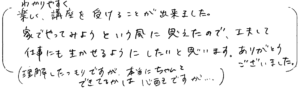 わかりやすく、
楽しく、講座を受けることが出来ました。
家でやってみようという風に思えたので、工夫して
仕事にも生かせるようにしたいと思います。ありがとう
ございました。
(理解したつもりですが、本当にちゃんと
できてるかは心配ですが…)